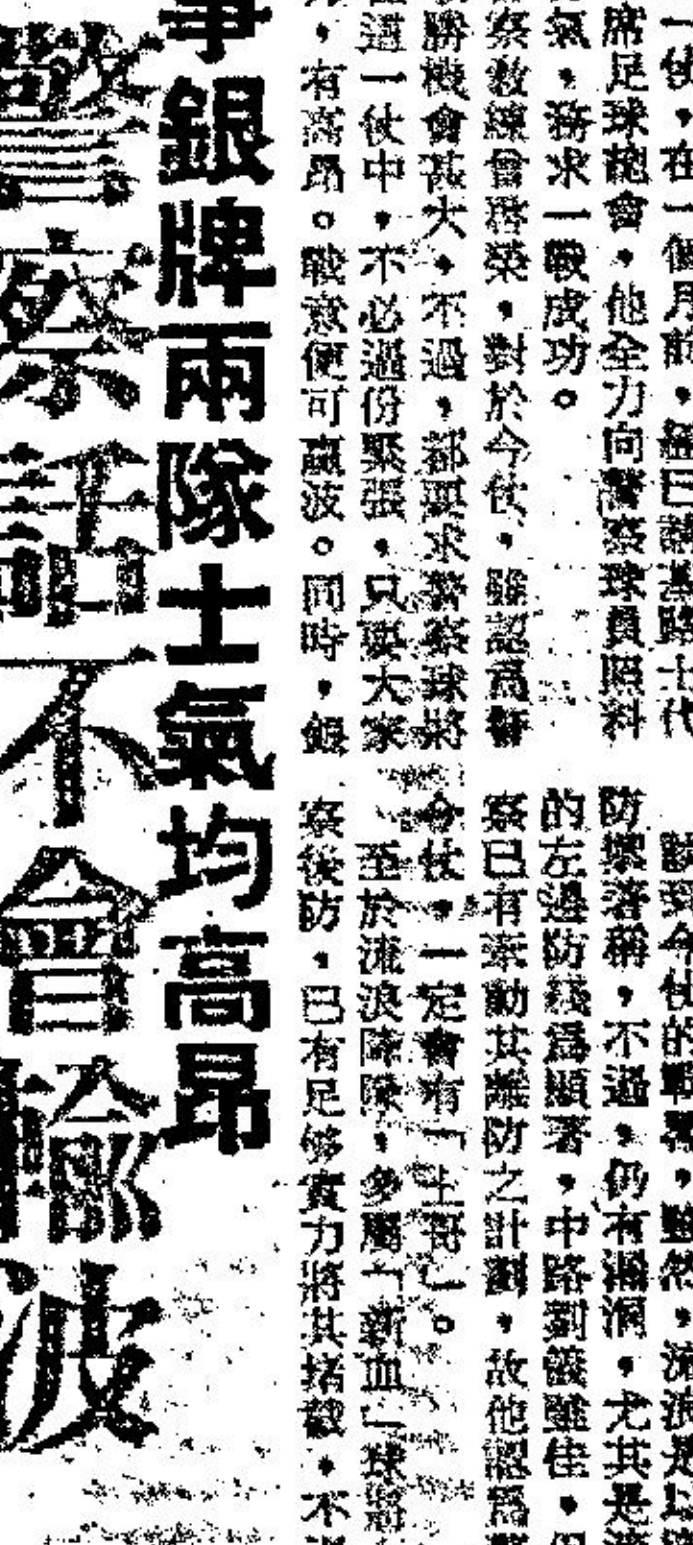 一仗，在一個月前，經已
士代
席足球總會，他全力向警察球員照料
氣，務求一戰成功。
察教練曾啓榮，對於今仗，雖認爲警
勝機會甚大，不過，都要求警察球將
這一仗中，不必過份緊張，只要大家
，有高昂。戰意便可贏波。同時，銀
今仗的戰
，雖然，流浪是以
防禦著稱，不過，仍有漏洞，尤其是
的左邊防綫爲顯著，中路劉儀雖佳，但
察已有牽動其離防之計劃，故他認爲
今仗，一定會有「士哥」。
至於流浪陣
，多屬「新血」球
察後防，已有足够實力將其堵截，不
爭銀牌兩隊士氣均高昂
警察話不會輸波